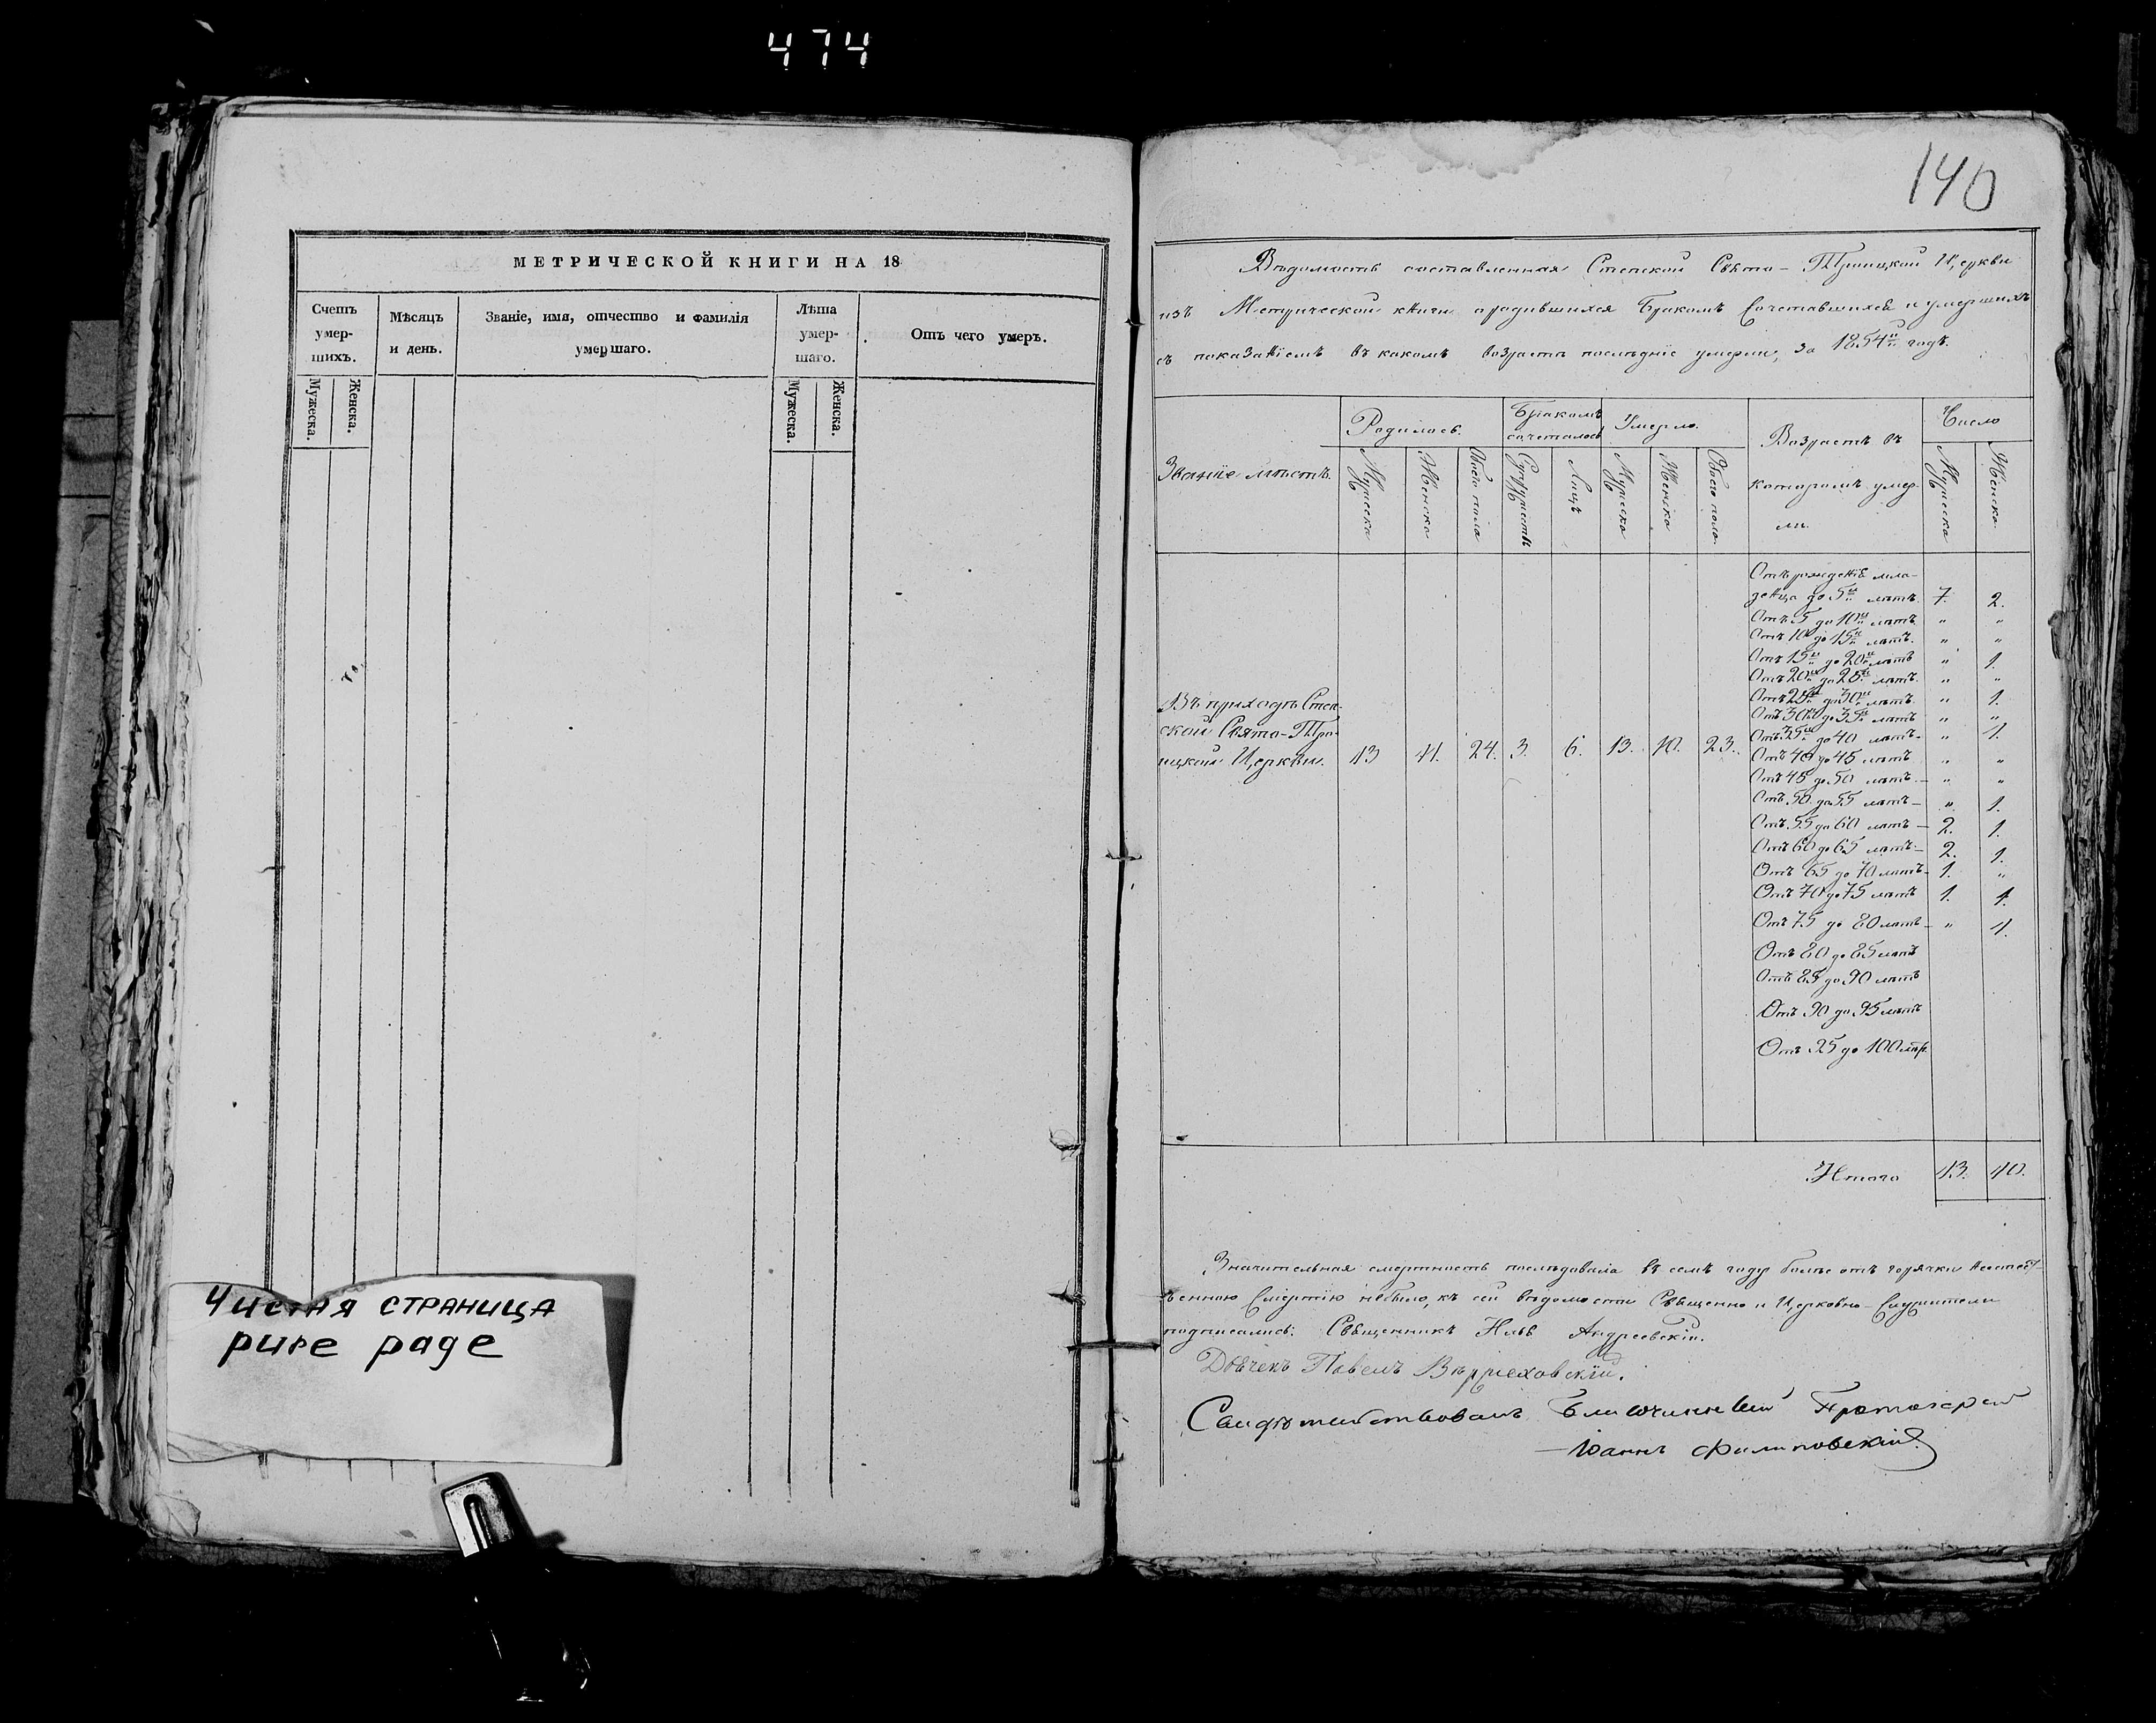 474
МЕТРИЧЕСКОЙ КНИГИ НА 18
Счетъ
умер-
шихъ.
Мужеска.
Женска.
Мѣсяцъ
и день.
Званіе, имя, отчество и фамилія
умершаго.
Лѣта
умер-
шаго.
Мужеска.
Женска.
Отъ чего умеръ.
Чистая страница
pure page
140
Вѣдомость составленная Степской Свято-Троицкой Церкви
изъ Метрической книги о родившихся Бракомъ Сочетавшихся и умершихъ
съ показаніемъ въ какомъ возрастѣ послѣдніе умерли, за 1854й годъ.
Званіе мѣстъ.
Родилось.
Мужеска
Женска
Обоего пола
Бракомъ
сочеталось
Супружествъ
Лицъ
Умерло.
Мужеска
Женска
Обоего пола.
Возрастъ въ
которомъ умер-
ли.
Число
Мужеска
Женска.
Въ приходѣ Степ-
ской Свято-Тро-
ицкой Церкви. 13 11. 24. 3. 6. 13. 10. 23.
Отъ рожденія мла-
денца до 5и лѣтъ. 7. 2.
Отъ 5 до 10и лѣтъ " "
Отъ 10 до 15и лѣтъ. " "
Отъ 15и до 20и лѣтъ " 1.
Отъ 20и до 25и лѣтъ. " "
Отъ 25и до 30и лѣтъ. " 1.
Отъ 30и до 35и лѣтъ " "
Отъ 35и до 40 лѣтъ- " 1.
Отъ 40 до 45 лѣтъ " "
Отъ 45 до 50 лѣтъ- " "
Отъ 50 до 55 лѣтъ- " 1.
Отъ 55 до 60 лѣтъ- 2. 1.
Отъ 60 до 65 лѣтъ- 2. 1.
Отъ 65 до 70 лѣтъ- 1. "
Отъ 70 до 75 лѣтъ 1. 1.
Отъ 75 до 80 лѣтъ- " 1.
Отъ 80 до 85 лѣтъ
Отъ 85 до 90 лѣтъ
Отъ 90 до 95 лѣтъ
Отъ 95 до 100 лѣтъ.
Итого 13. 10.
Значительная смертность послѣдовала въ семъ году болѣе отъ горячки
Смертію небыло, къ сей вѣдомости Священно и Церковно-Служители
подписались: Священникъ Илья Андреевскій.
Дьячекъ Павелъ
Свидѣтельствовалъ Благочинный Протоіерей
Іоаннъ Филиповскій